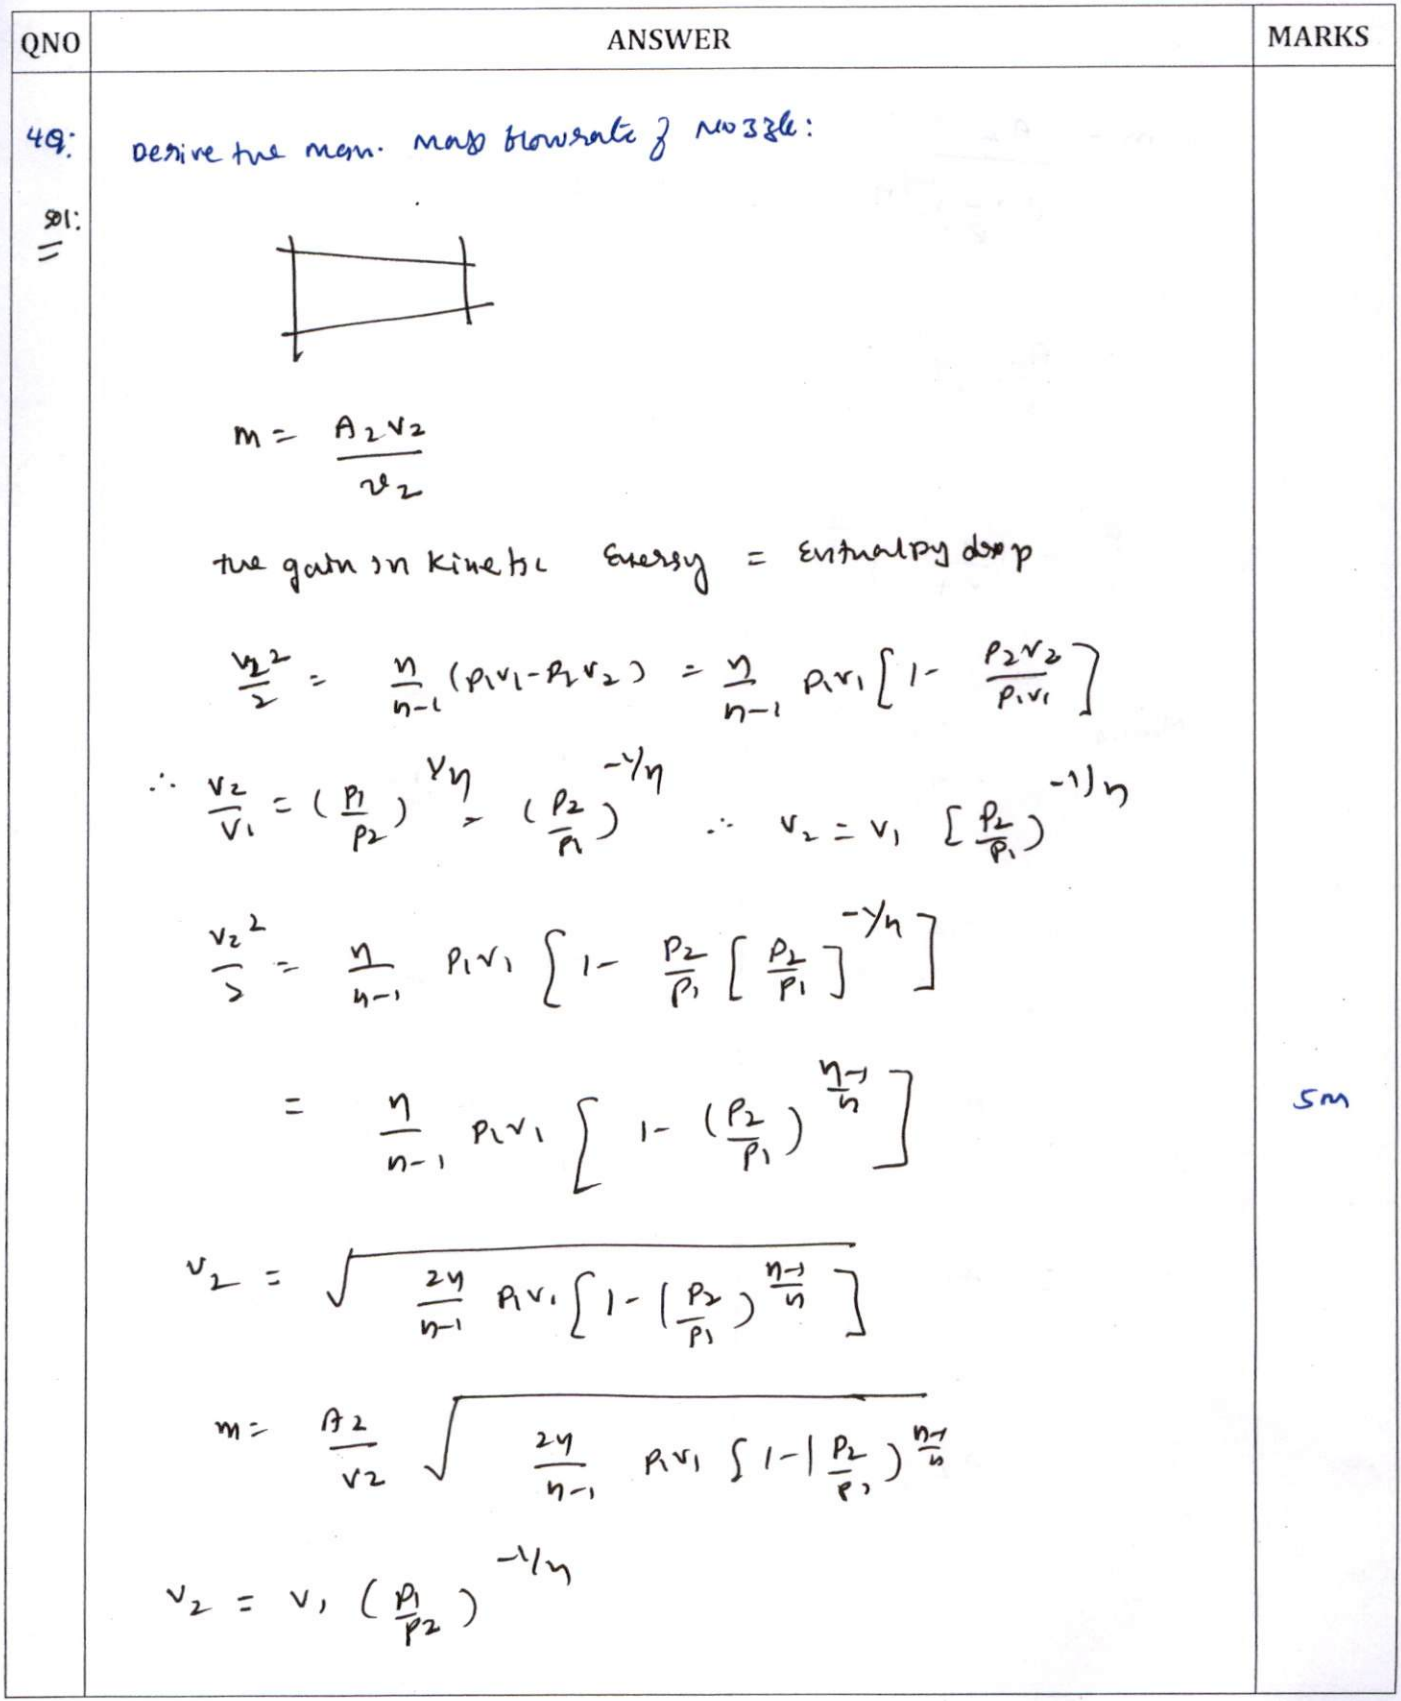 QNO ANSWER MARKS
4Q: Derive the max. mass flowrate of Nozzle:
sol:
m = A2V2 / v2
the gain in kinetic Energy = Enthalpy drop
V2^2/2 = n/n-1 (P1v1-P2v2) = n/n-1 P1v1 [1- P2v2/P1v1]
∴ v2/v1 = (P1/P2)^1/n = (P2/P1)^-1/n ∴ v2 = v1 [P2/P1)^-1/n
V2^2/2 = n/n-1 P1v1 [1- P2/P1 [P2/P1]^-1/n]
= n/n-1 P1v1 [1- (P2/P1)^n-1/n] 5M
V2 = √ 2n/n-1 P1v1 [1-(P2/P1)^n-1/n]
m = A2/v2 √ 2n/n-1 P1v1 [1-(P2/P1)^n-1/n
v2 = v1 (P1/P2)^-1/n